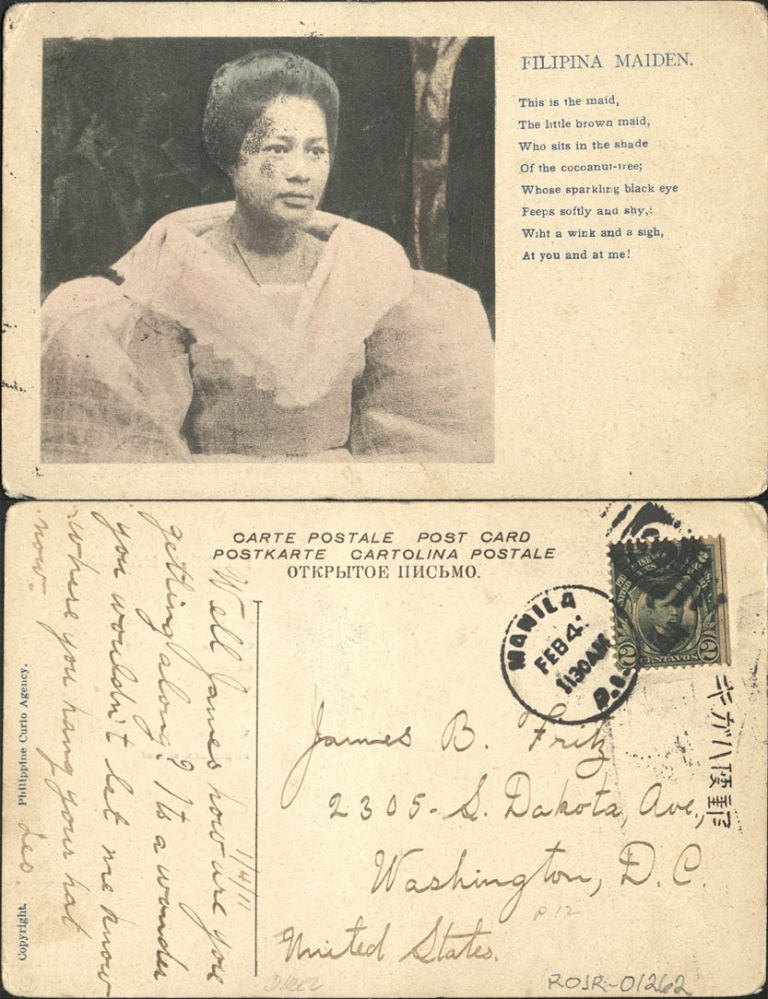 FILIPINA MAIDEN.
This is the maid,
The little brown maid,
Who sits in the shade
Of the cocoanut-tree;
Whose sparkling black eye
Peeps softly and shy,:
Wiht a wink and a sigh,
At you and at me!
CARTE POSTALE POST CARD
POSTKARTE CARTOLINA POSTALE
ОТКРЫТОЕ ПИСЬМО.
1/4/11
Well James how are you
getting along? Its a wonder
you wouldn't let me know
where you hang your hat
now. Les.
Copyright. Philippine Curio Agency.
MANILA
FEB 4
1130AM
P.I.
2 CENTAVOS 2
James B. Fritz
2305-S. Dakota, Ave.,
Washington, D.C.
United States.
P 12
ROJR-01262